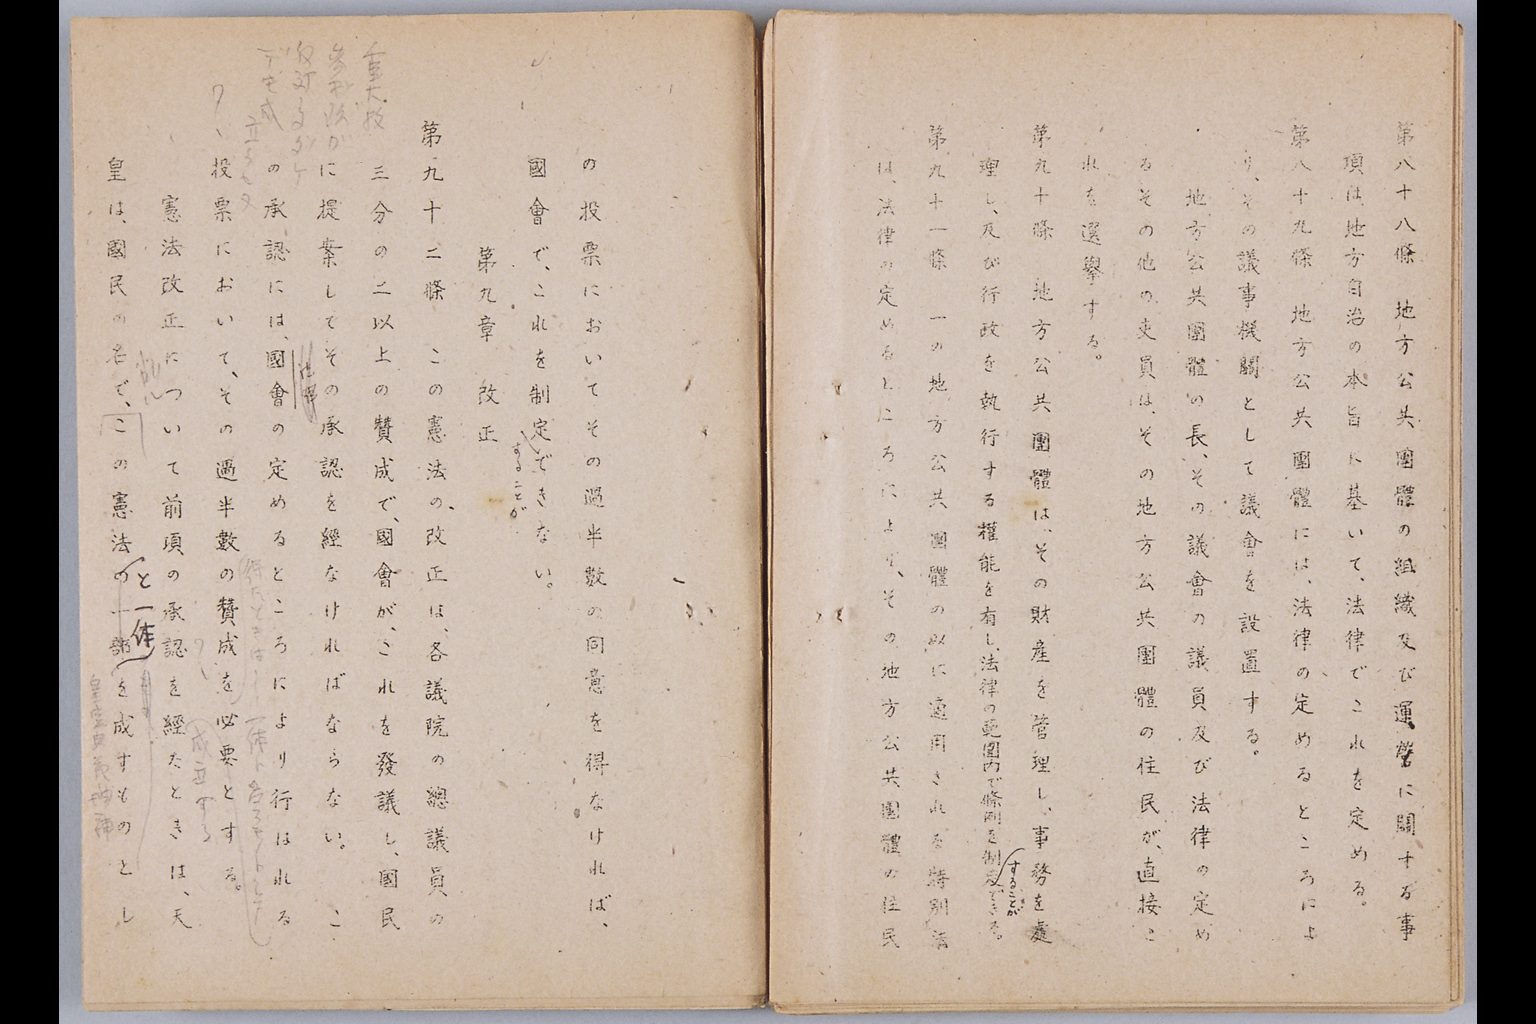 第八十八條　地方公共團體の組織及び運營に關する事
項は、地方自治の本旨に基いて、法律でこれを定める。
第八十九條　地方公共團體には、法律の定めるところによ
り、その議事機關として議會を設置する。
地方公共團體の長、その議會の議員及び法律の定め
るその他の吏員は、その地方公共團體の住民が、直接こ
れを選擧する。
第九十條　地方公共團體は、その財産を管理し、事務を處
理し、及び行政を執行する權能を有し、法律の範圍内で條例を制定できる。
することが
第九十一條　一の地方公共團體のみに適用される特別法
は、法律の定めるところにより、その地方公共團體の住民
の投票においてその過半數の同意を得なければ、
國會で、これを制定できない。
することが
第九章　改正
第九十二條　この憲法の、改正は、各議院の總議員の
三分の二以上の贊成で、國會が、これを發議し、國民
に提案してその承認を經なければならない。こ
の承認には、國會の定めるところにより行はれる
投票において、その過半數の贊成を必要とする。
憲法改正について前項の承認を經たときは、天
皇は、國民の名で、この憲法の一部を成すものとし
と一体
成立する